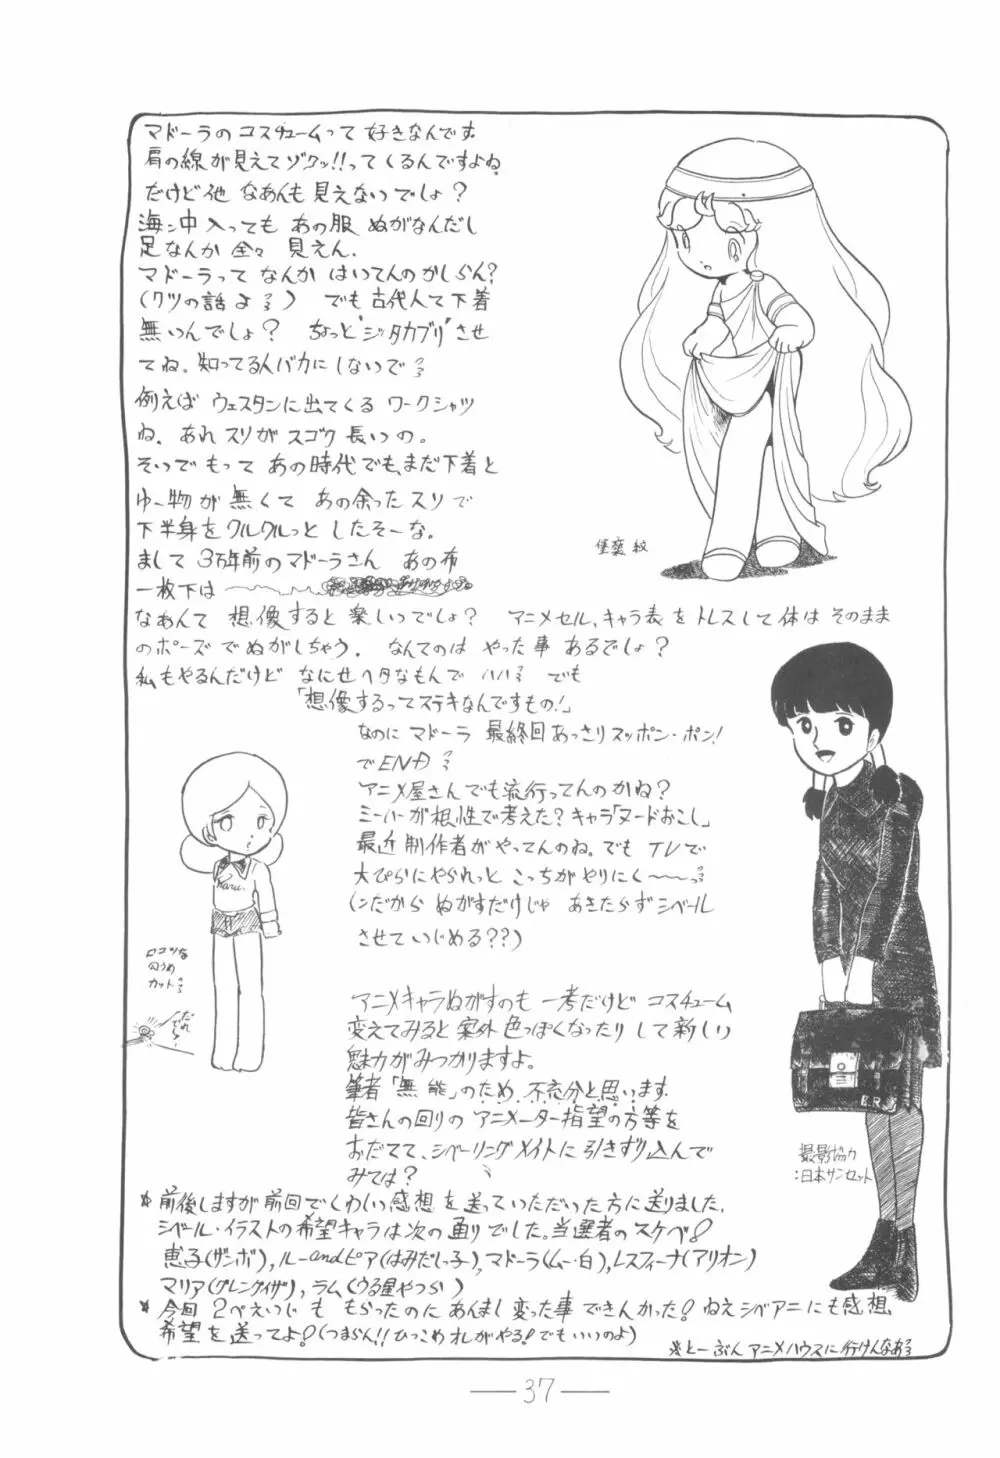 マドーラのコスチュームって好きなんです。
肩の線が見えてゾクッ!!ってくるんですよね。
だけど他 なあんも見えないでしょ?
海ン中入っても あの服 ぬがなんだし
足なんか全々 見えん。
マドーラって なんか はいてんのかしらん?
(クツの話よ) でも古代人て下着
無いんでしょ? ちょっと"ジッタカブリ"させ
てね。知ってる人バカにしないで
例えば ウェスタンに出てくる ワークシャツ
ね。あれスソがスゴク長いの。
そいでもって あの時代でも、まだ下着と
ゆー物が無くて あの余ったスソで
下半身をクルクルっと したそーな。
まして3万年前のマドーラさん あの布
一枚下は
なあんて 想像すると楽しいでしょ? アニメセル、キャラ表をトレスして体はそのまま
のポーズでぬがしちゃう。なんてのは やった事 あるでしょ?
私もやるんだけど なにせヘタなもんで ハハ でも
「想像するってステキなんですもの!」
なのに マドーラ 最終回あっさりスッポン・ポン!
でEND
アニメ屋さんでも流行ってんのかね?
ミーハーが根性で考えた?キャラ「ヌードおこし」
最近 制作者がやってんのね。でも TVで
大ぴらにやられっと こっちがやりにく〜〜っ
(だから ぬがすだけじゃ あきたらずシベール
させていじめる??)
ロコツな
穴うめ
カット
だれ
でぇ〜
Karu
アニメキャラぬがすのも 一考だけど コスチューム
変えてみると案外色っぽくなったりして新しい
魅力がみつかりますよ。
筆者「無能」のため 不充分と思います。
皆さんの回りの アニメーター指望の方等を
おだてて、シベーリングメイトに引きずり込んで
みては?
B.R
撮影協力
:日本サンセット
*前後しますが前回でくわしい感想を送っていただいた方に送りました。
シベール・イラストの希望キャラは次の通りでした。当選者のスケベ!
恵子(ザンボ),ルーandピア(はみだしっ子),マドーラ(ムー・白),レスフィーナ(アリオン)
マリア(グレンダイザ),ラム(うる星やつら)
*今回 2ペえじも もらったのに あんまし変った事できんかった!ねえシベアニにも感想、
希望を送ってよ!(つまらん!!ひっこめオレがやる!でもいいのよ)
※とーぶん アニメハウスに行けんなあ
— 37 —